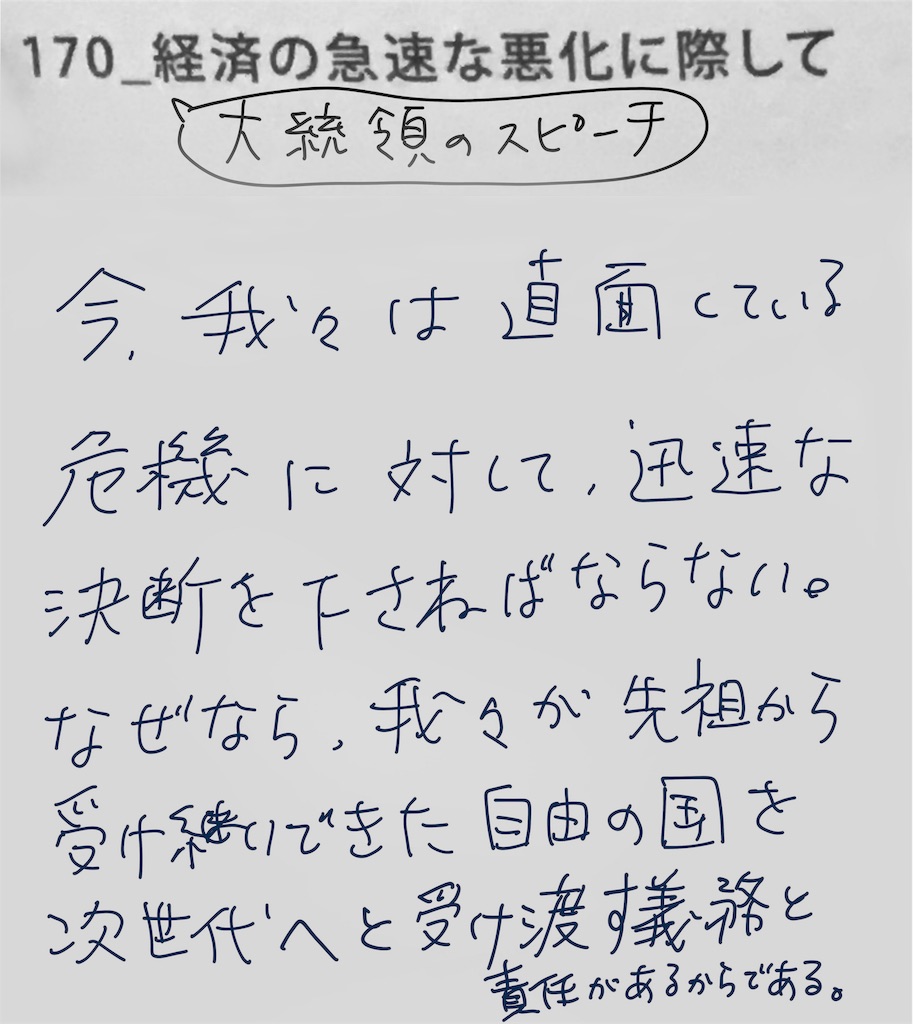 170_経済の急速な悪化に際して
大統領のスピーチ
今、我々は直面している
危機に対して、迅速な
決断を下さねばならない。
なぜなら、我々が先祖から
受け継いできた自由の国を
次世代へと受け渡す義務と
責任があるからである。